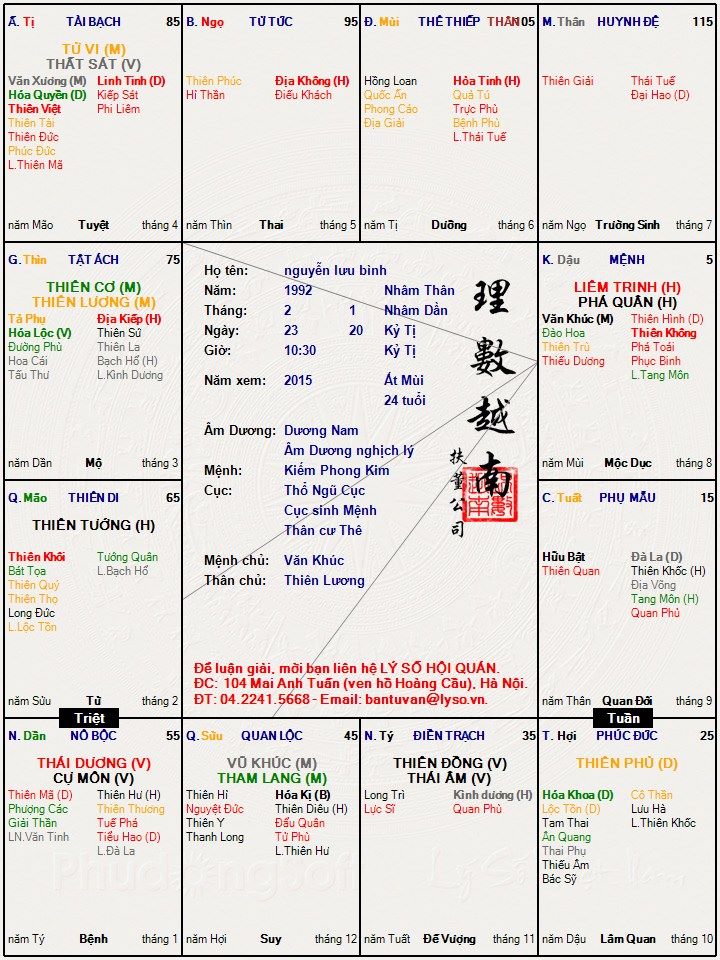 Ấ. Tị TÀI BẠCH 85
TỬ VI (M)
THẤT SÁT (V)
Văn Xương (M) Linh Tinh (D)
Hóa Quyền (D) Kiếp Sát
Thiên Việt Phi Liêm
Thiên Tài
Thiên Đức
Phúc Đức
L.Thiên Mã
năm Mão Tuyệt tháng 4
B. Ngọ TỬ TỨC 95
Thiên Phúc Địa Không (H)
Hỉ Thần Điếu Khách
năm Thìn Thai tháng 5
Đ. Mùi THÊ THIẾP THÂN 105
Hồng Loan Hỏa Tinh (H)
Quốc Ấn Quả Tú
Phong Cáo Trực Phù
Địa Giải Bệnh Phù
L.Thái Tuế
năm Tị Dưỡng tháng 6
M. Thân HUYNH ĐỆ 115
Thiên Giải Thái Tuế
Đại Hao (D)
năm Ngọ Trường Sinh tháng 7
G. Thìn TẬT ÁCH 75
THIÊN CƠ (M)
THIÊN LƯƠNG (M)
Tả Phụ Địa Kiếp (H)
Hóa Lộc (V) Thiên Sứ
Đường Phù Thiên La
Hoa Cái Bạch Hổ (H)
Tấu Thư L.Kình Dương
năm Dần Mộ tháng 3
Họ tên: nguyễn lưu bình
Năm: 1992 Nhâm Thân
Tháng: 2 1 Nhâm Dần
Ngày: 23 20 Kỷ Tị
Giờ: 10:30 Kỷ Tị
Năm xem: 2015 Ất Mùi
24 tuổi
Âm Dương: Dương Nam
Âm Dương nghịch lý
Mệnh: Kiếm Phong Kim
Cục: Thổ Ngũ Cục
Cục sinh Mệnh
Thân cư Thê
Mệnh chủ: Văn Khúc
Thân chủ: Thiên Lương
理數越南
扶董公司
Để luận giải, mời bạn liên hệ LÝ SỐ HỘI QUÁN.
ĐC: 104 Mai Anh Tuấn (ven hồ Hoàng Cầu), Hà Nội.
ĐT: 04.2241.5668 - Email: bantuvan@lyso.vn.
K. Dậu MỆNH 5
LIÊM TRINH (H)
PHÁ QUÂN (H)
Văn Khúc (M) Thiên Hình (D)
Đào Hoa Thiên Không
Thiên Trù Phá Toái
Thiếu Dương Phục Binh
L.Tang Môn
năm Mùi Mộc Dục tháng 8
Q. Mão THIÊN DI 65
THIÊN TƯỚNG (H)
Thiên Khôi Tướng Quân
Bát Tọa L.Bạch Hổ
Thiên Quý
Thiên Thọ
Long Đức
L.Lộc Tồn
năm Sửu Tử tháng 2
C. Tuất PHỤ MẪU 15
Hữu Bật Đà La (D)
Thiên Quan Thiên Khốc (H)
Địa Võng
Tang Môn (H)
Quan Phủ
năm Thân Quan Đới tháng 9
Triệt
Tuần
N. Dần NÔ BỘC 55
THÁI DƯƠNG (V)
CỰ MÔN (V)
Thiên Mã (D) Thiên Hư (H)
Phượng Các Thiên Thương
Giải Thần Tuế Phá
LN.Văn Tinh Tiểu Hao (D)
L.Đà La
năm Tý Bệnh tháng 1
Q. Sửu QUAN LỘC 45
VŨ KHÚC (M)
THAM LANG (M)
Thiên Hỉ Hóa Kị (B)
Nguyệt Đức Thiên Diêu (H)
Thiên Y Đẩu Quân
Thanh Long Tử Phù
L.Thiên Hư
năm Hợi Suy tháng 12
N. Tý ĐIỀN TRẠCH 35
THIÊN ĐỒNG (V)
THÁI ÂM (V)
Long Trì Kình dương (H)
Lực Sĩ Quan Phù
năm Tuất Đế Vượng tháng 11
T. Hợi PHÚC ĐỨC 25
THIÊN PHỦ (D)
Hóa Khoa (D) Cô Thần
Lộc Tồn (D) Lưu Hà
Tam Thai L.Thiên Khốc
Ân Quang
Thai Phụ
Thiếu Âm
Bác Sỹ
năm Dậu Lâm Quan tháng 10